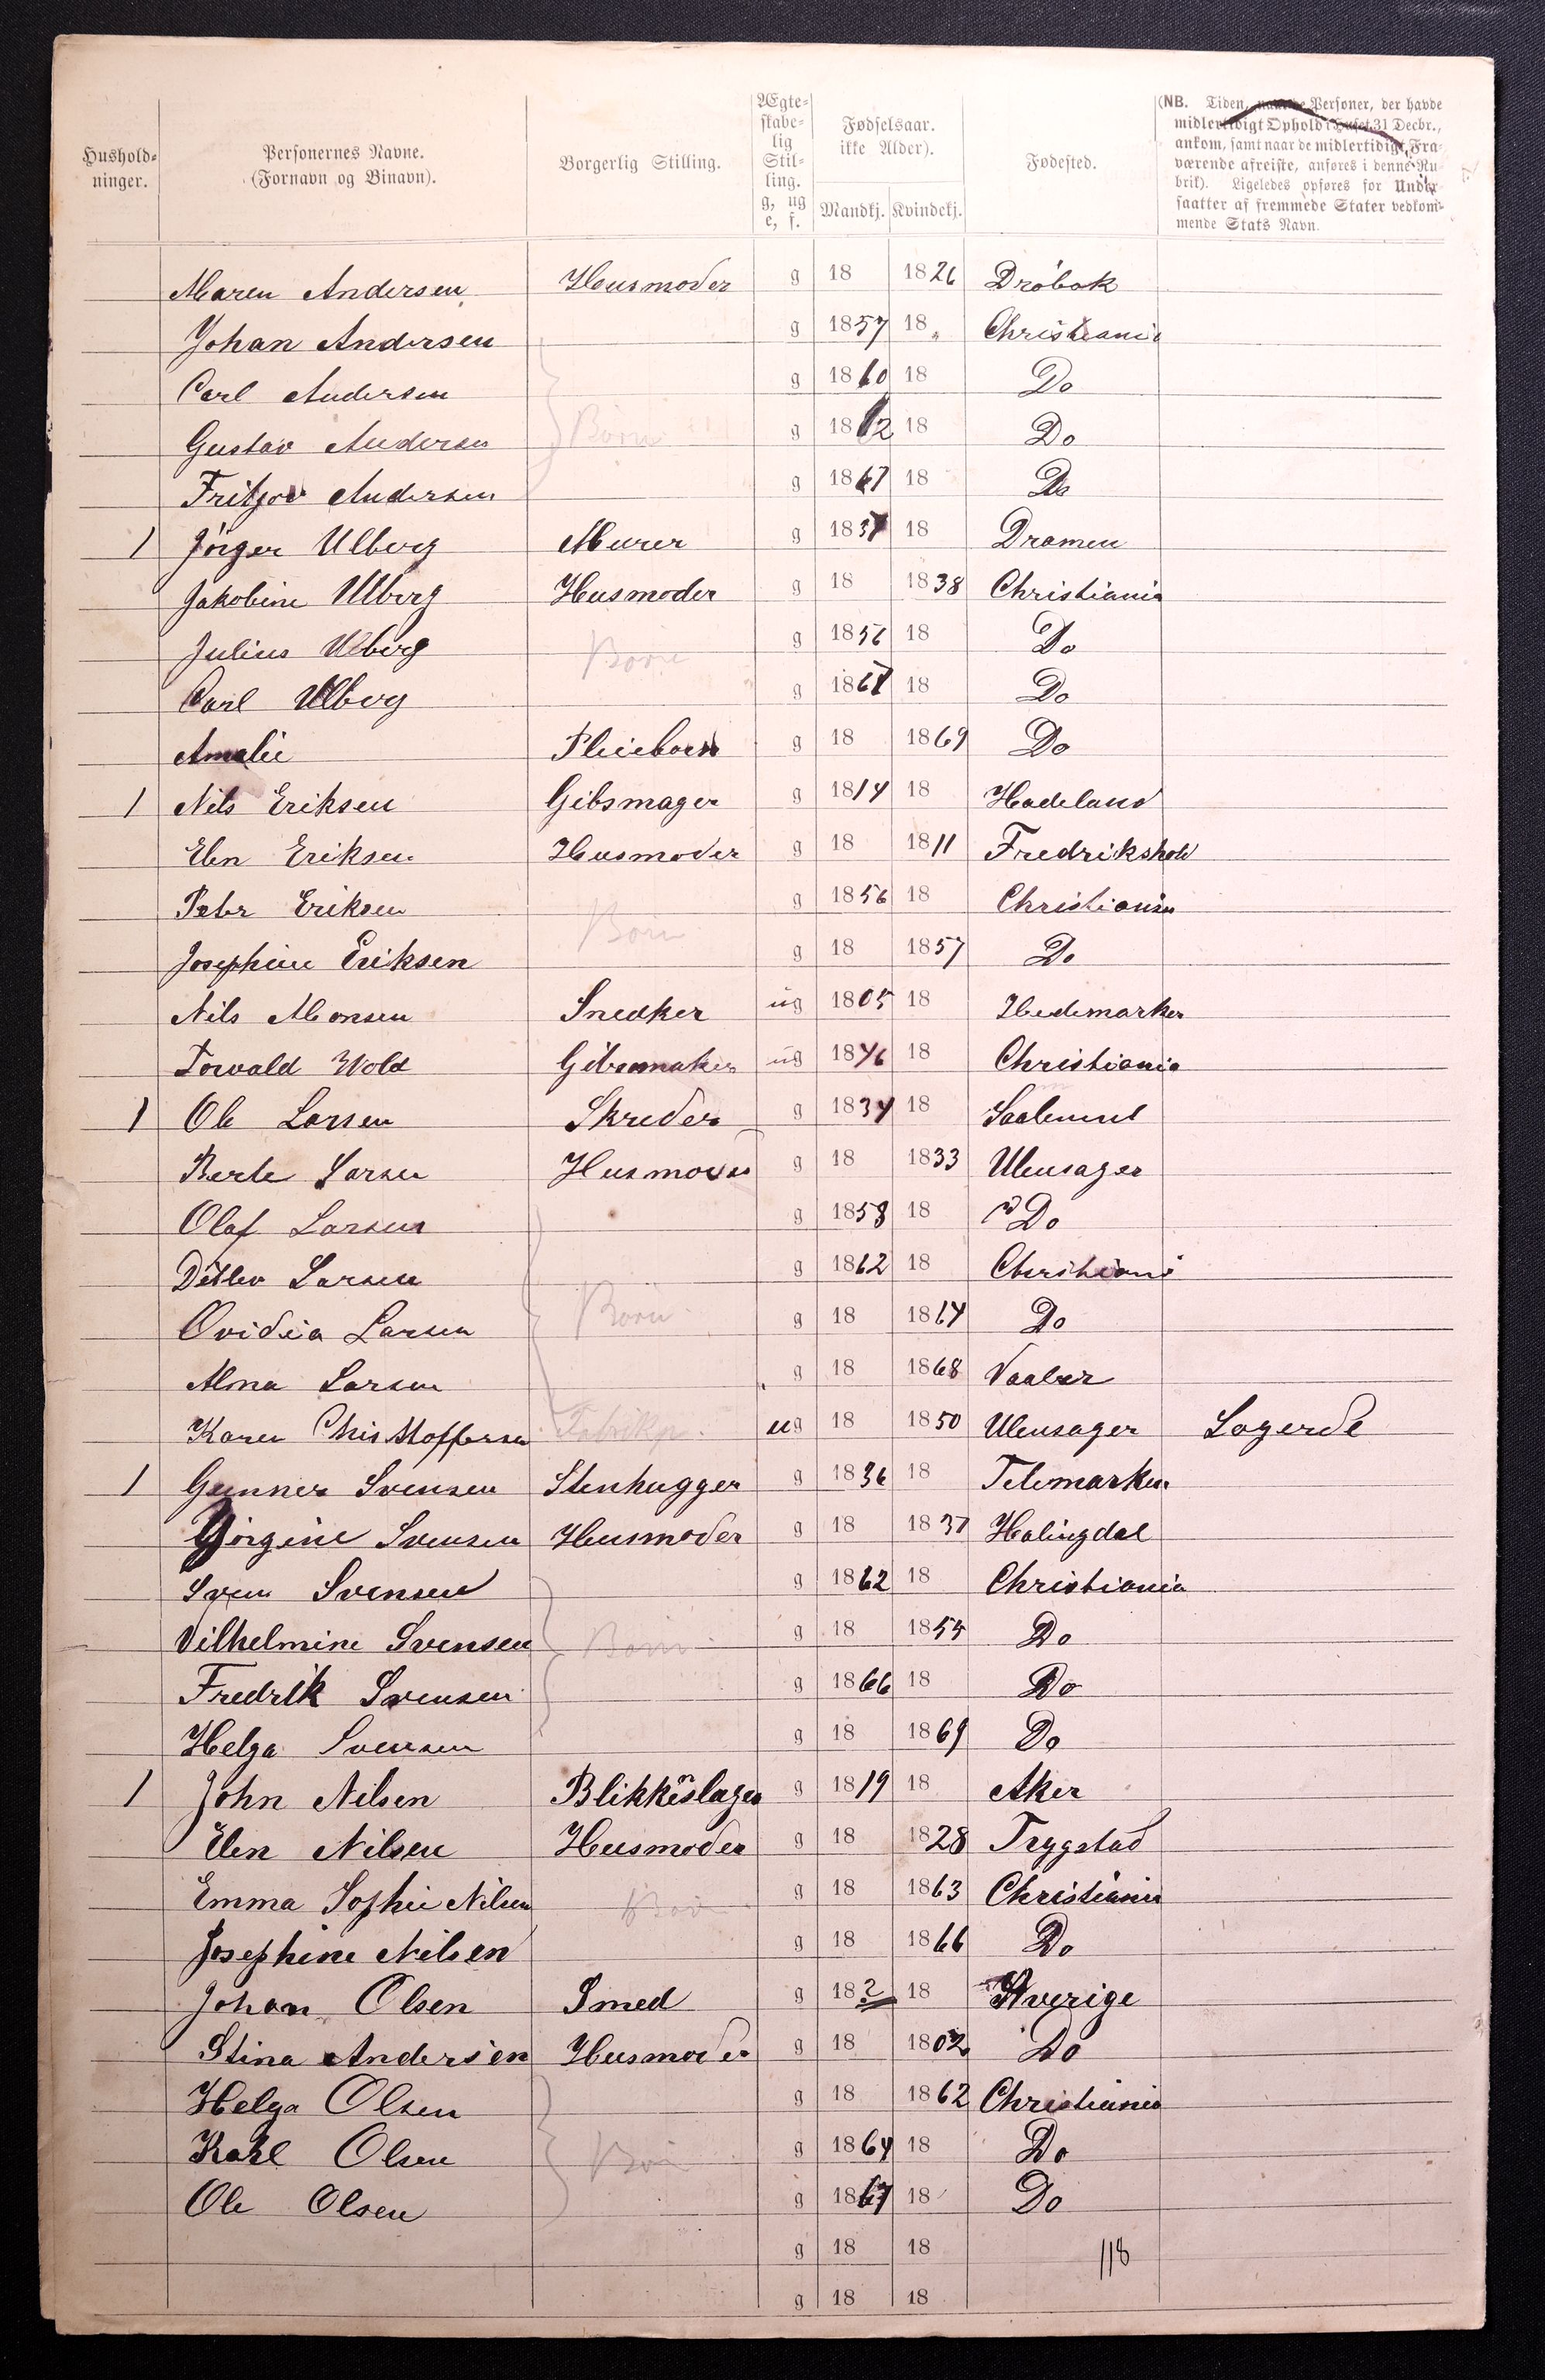 Hushold-
ninger.
Personernes Navne.
(Fornavn og Binavn).
Borgerlig Stilling.
Ægte-
skabe-
lig
Stil-
ling.
g, ug
e, f.
Fødselsaar.
ikke Alder).
Mandkj. Kvindekj.
Fødested.
(NB. Tiden, naar de Personer, der havde
midlertidigt Ophold i Huset 31 Decbr.,
ankom, samt naar de midlertidigt Fra-
værende afreiste, anføres i denne Ru-
brik). Ligeledes opføres for Under-
saatter af fremmede Stater vedkom-
mende Stats Navn.
Maren Andersen Husmoder g 18 1826 Dröbak
Johan Andersen g 1857 18 Christiania
Carl Andersen g 1860 18 Do
Gustav Andersen Börn g 1862 18 Do
Fritjov Andersen g 1867 18 Do
1 Jörger Ulberg Murer g 1837 18 Dramen
Jakobine Ulberg Husmoder g 18 1838 Christiania
Julius Ulberg Börn g 1856 18 Do
Carl Ulberg g 1868 18 Do
Amalie Pleiebarn g 18 1869 Do
1 Nils Eriksen Gibsmager g 1814 18 Hadeland
Elen Eriksen Husmoder g 18 1811 Fredrikshold
Peter Eriksen Börn g 1856 18 Christiania
Josephine Eriksen g 18 1857 Do
Nils Monsen Snedker ug 1805 18 Hedemarken
Torvald Wold Gibsmaker ug 1846 18 Christiania
1 Ole Larsen Skreder g 1834 18
Berte Larsen Husmoder g 18 1833 Ulensager
Olaf Larsen g 1858 18 Do
Ditlev Larsen g 1862 18 Christiania
Ovidia Larsen Börn g 18 1864 Do
Alma Larsen g 18 1868 Vaaler
Karen Christoffersen Fabrikp. ug 18 1850 Ulensager Logerde
1 Gunner Svensen Stenhugger g 1836 18 Telemarken
Görgine Svensen Husmoder g 18 1837 Halingdal
Sven Svensen g 1862 18 Christiania
Vilhelmine Svensen Börn g 18 1855 Do
Fredrik Svensen g 1866 18 Do
Helga Svensen g 18 1869 Do
1 John Nilsen Blikkenslager g 1819 18 Aker
Elen Nilsen Husmoder g 18 1828 Trygstad
Emma Sophie Nilsen Börn g 18 1863 Christiania
Josephine Nilsen g 18 1866 Do
Johan Olsen Smed g 182 18 Sverige
Stina Andersen Husmoder g 18 1802 Do
Helga Olsen g 18 1862 Christiania
Karl Olsen Börn g 1864 18 Do
Ole Olsen g 1867 18 Do
g 18 18 118
g 18 18